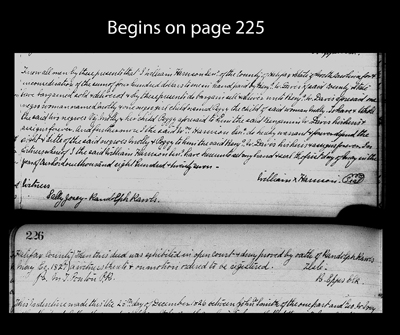 Begins on page 225
Know all men by these presents that I William Harrison Senr. of the County of Halifax & State of North Carolina for &
in consideration of the sum of four hundred dollars to me in hand paid by Benj. W. Davis of said County & State
have bargained sold & delivered & by these presents do bargain sell & deliver unto Benj. W. Davis aforesaid one
negro woman named and one negro girl child named the child of said woman To have & hold
the said two negroes & her child aforesaid to him the said Benjamin W. Davis his heirs &
assigns forever. And furthermore I the said Wm. Harrison Senr. do hereby warrant & forever defend the
right & title of the said negroes to him the said Benj. W. Davis his heirs & assigns forever. In
witness whereof I the said William Harrison Senr. have hereunto set my hand & seal this first day of May in the
year of our Lord one thousand eight hundred & twenty seven -
William Harrison Seal
Witness
Randolph Rawls
226
Halifax County Then this deed was exhibited in open court & duly proved by oath of Randolph Rawls
May Ct. 1827 a witness thereto & on motion ordered to be registered. Teste
B. Eppes Clk
This indenture made this the 20th day of December 1826 between John of the one part and